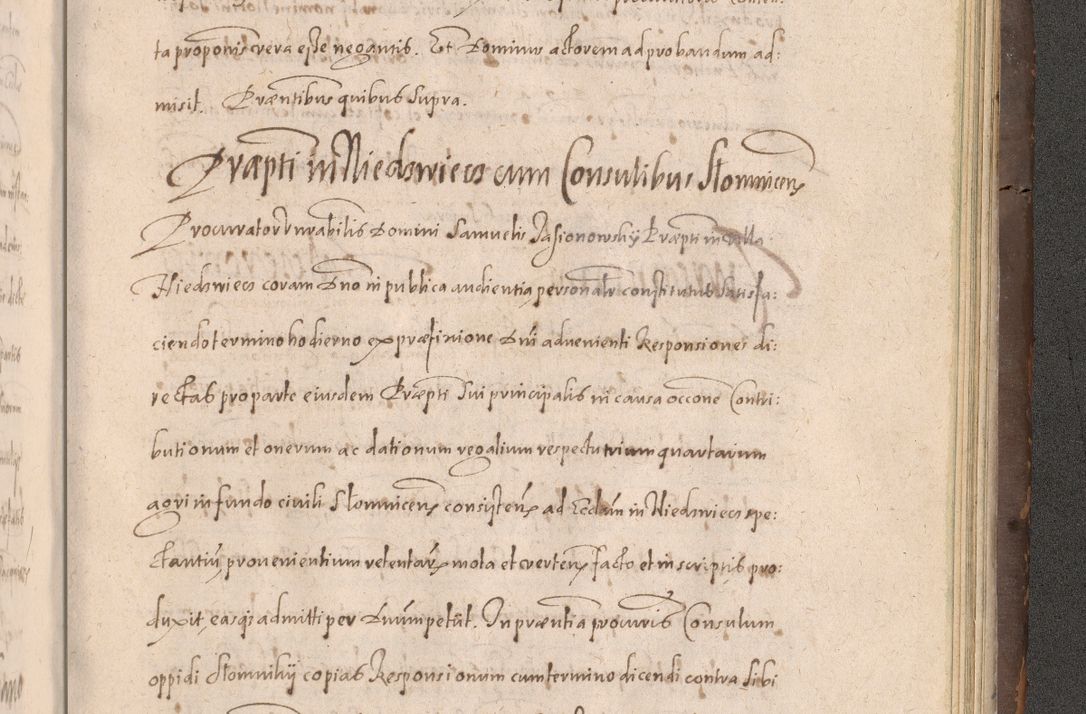 ta proponis̃ vera esse negantis. Et Dominus actorem ad probandum ad:
misit. Præntibus quibus supra.
Præpti in Niedzwiecz cum Consulibus Słomnicen̄
Procurator Vnrabilis Domini Samuelis Jasionowskÿ Præpti in villa
Niedzwiecz coram Dno in publica audientia personalr constitutus satisfa:
ciendo termino hodierno ex præfinione Dni aduenienti Responsiones di:
rectas pro parte eiusdem Præpti sui principalis in causa occone Contri:
butionum et onerum ac dationum regalium respectu trium quartarum
agri in fundo ciuili Słomnicen̄ consisten̄ ad Eccl̄am in Niedzwiecz spe:
ctantiū prouenientium retentar̄ mota et verten̄ facto et in scriptis pro:
duxit, easq̃ admitti per Dnūm petiit. In præntia procuris Consulum
oppidi Słomnikÿ copias Responsionum cum termino dicendi contra sibi